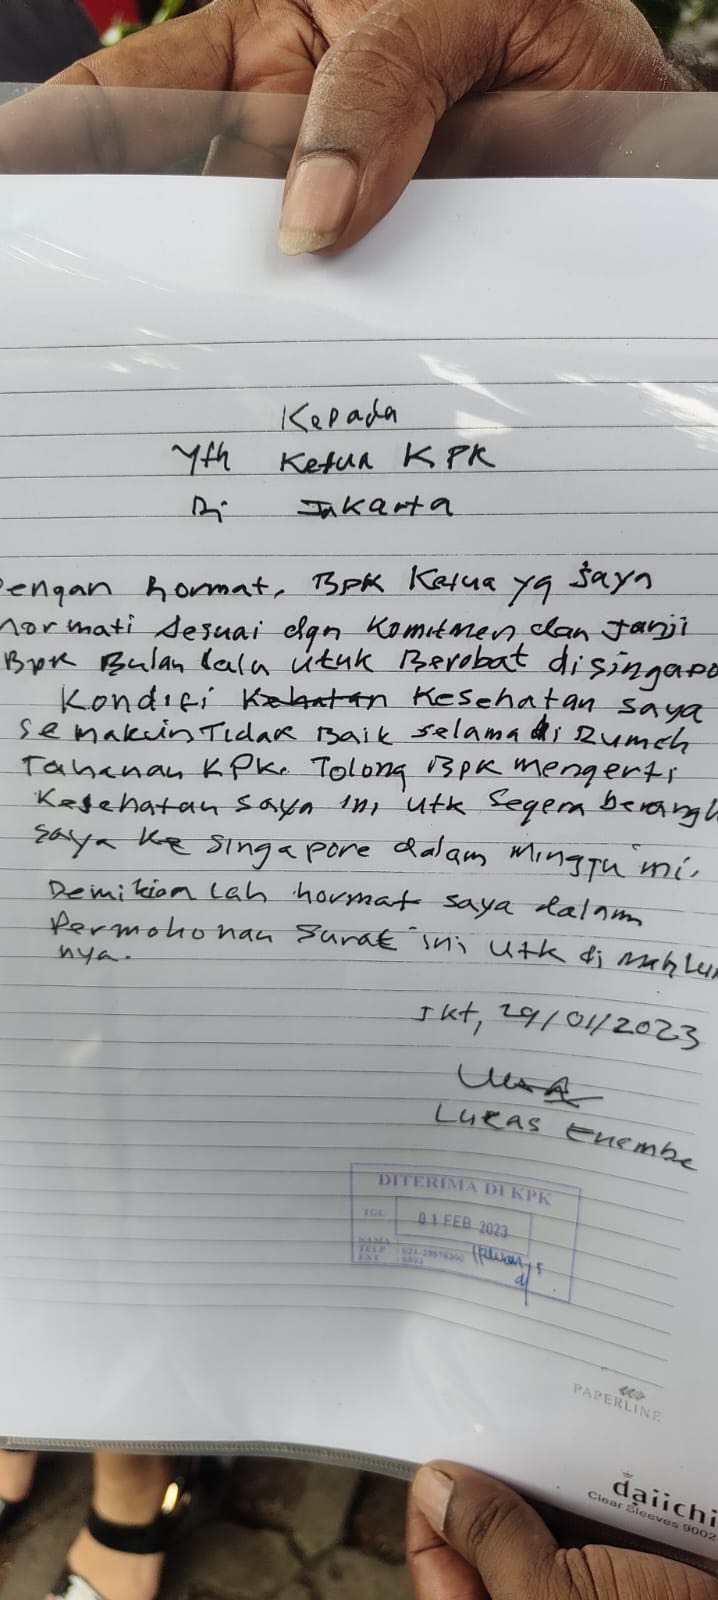 Kepada
Yth Ketua KPK
Di Jakarta
Dengan hormat, BPK Ketua yg saya
hormati sesuai dgn Komitmen dan Janji
BPK Bulan lalu utuk Berobat disingapo
Kondisi Kehatan Kesehatan saya
semakin Tidak Baik selama di Rumah
Tahanan KPK. Tolong BPK mengerti
Kesehatan saya ini utk segera berangk
saya ke singapore dalam minggu ini.
Demikian lah hormat saya dalam
Permohonan surat ini utk di
nya.
Jkt, 29/01/2023
Lukas Enembe
DITERIMA DI KPK
TGL 01 FEB 2023
NAMA
TELP
EXT
PAPERLINE
daiichi
Clear Sleeves 9002